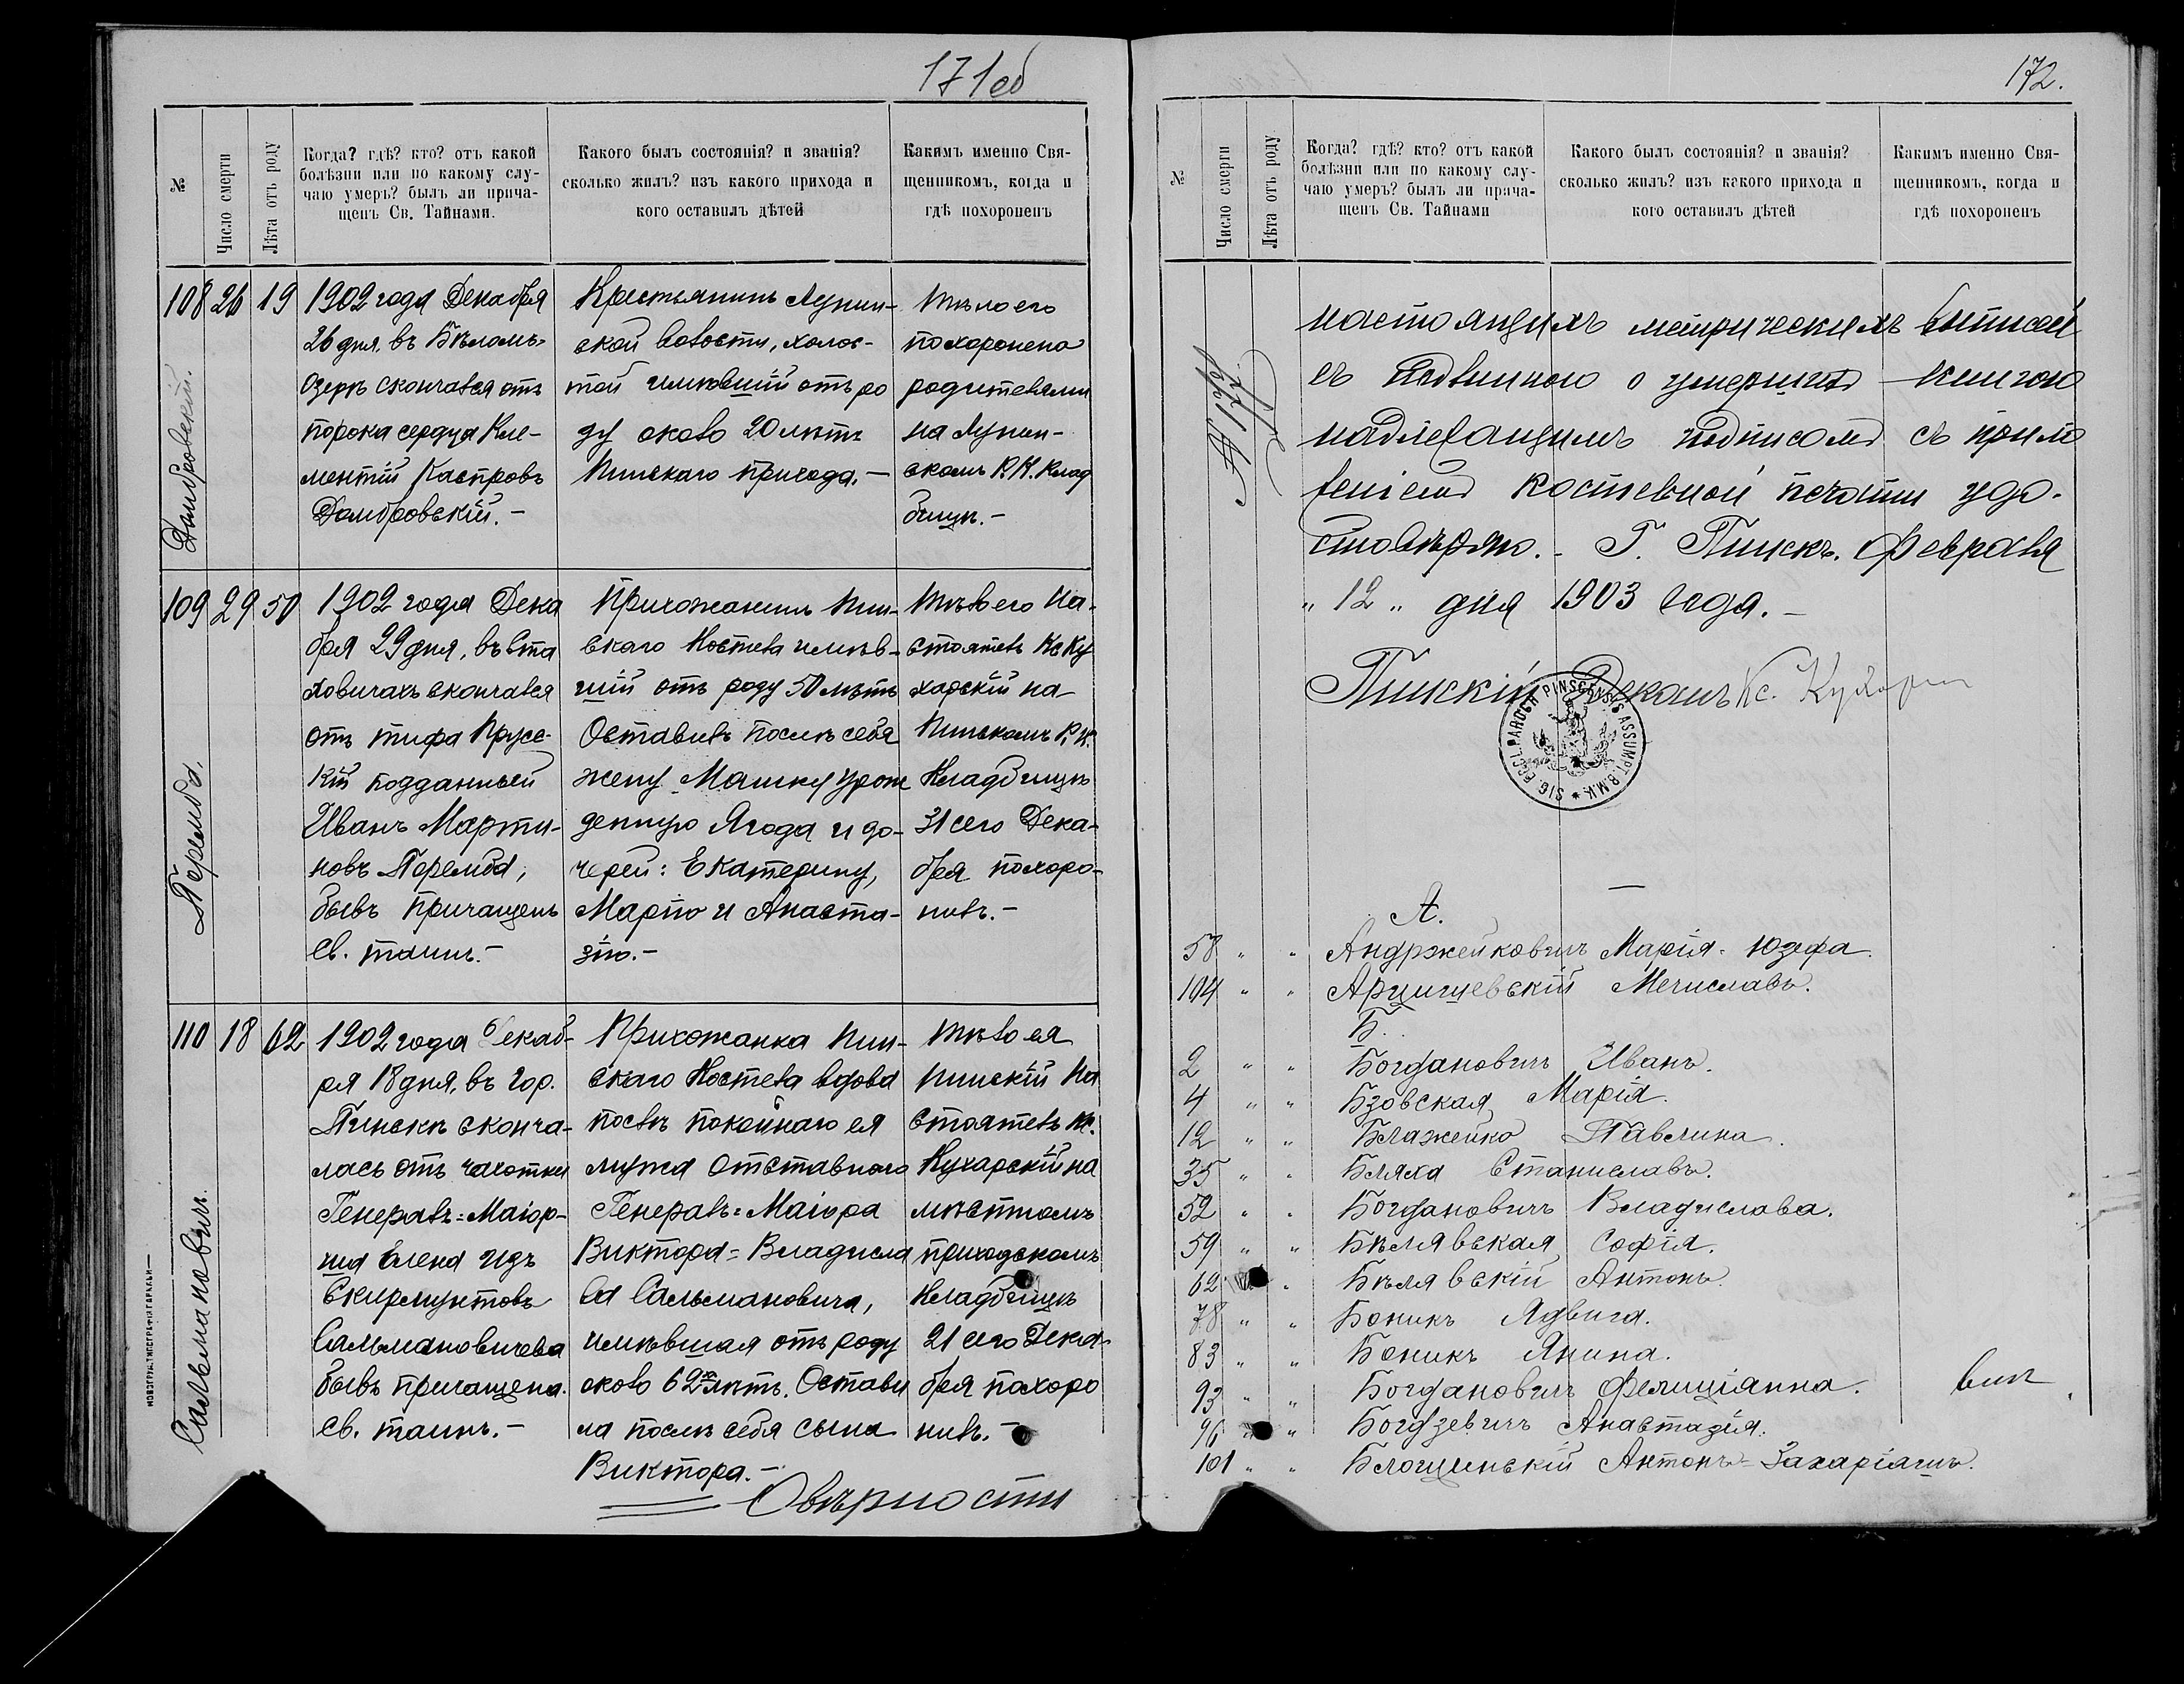 171об
№
Число смерти
Лѣта отъ роду
Когда? гдѣ? кто? отъ какой
болѣзни или по какому слу-
чаю умеръ? былъ ли прича-
щенъ Св. Тайнами.
Какого былъ состоянія? и званія?
сколько жилъ? изъ какого прихода и
кого оставилъ дѣтей
Какимъ именно Свя-
щенникомъ, когда и
гдѣ похороненъ
108 26 19
Домбровскій.
1902 года Декабря
26 дня, въ Бѣломъ-
Озерѣ скончался отъ
порока сердца Кле-
ментій Каспровъ
Домбровскій.-
Крестьянинъ Лунин-
ской волости, холос-
той имѣвшій отъ ро
ду около 20 лѣтъ
Пинскаго прихода.-
Тѣло его
похоронено
родителями
на Лунин-
скомъ Р.К. Клад
бищѣ.-
109 29 50
Перемба.
1902 года Дека
бря 29 дня, въ Ста
ховичахъ скончался
отъ тифа Прусс-
кій подданный
Иванъ Марти-
новъ Перемба,
бывъ причащенъ
Св. таинъ.-
Прихожанинъ Пин-
скаго Костела имѣв-
шій отъ роду 50 лѣтъ
Оставилъ послѣ себя
жену Машку урож
денную Ягода и до-
черей: Екатерину,
Марію и Анаста-
зію.-
Тѣло его На-
стоятель Кс Ку
харскій на
Пинскомъ Р. К.
Кладбищѣ
31 сего Дека-
бря похоро-
нилъ.-
110 18 62
Сальмановичъ.
1902 года Декаб-
ря 18 дня, въ гор.
Пинскѣ сконча-
лась отъ чахотки
Генералъ=Маіор-
ша Елена изъ
Скирмунтовъ
Сальмановичева
бывъ причащена
Св. таинъ.-
Прихожанка Пин-
скаго Костела вдова
послѣ покойнаго ея
мужа Отставного
Генералъ=Маіора
Виктора=Владисла
ва Сальмановича,
имѣвшая отъ роду
около 62хъ лѣтъ. Остави
ла послѣ себя сына
Виктора.-
Тѣло ея
Пинскій На
стоятель Кс.
Кухарскій на
мѣстномъ
приходскомъ
Кладбищѣ
21 сего Дека-
бря похоро
нилъ.-
О вѣрности
172.
№
Число смерти
Лѣта отъ роду
Когда? гдѣ? кто? отъ какой
болѣзни или по какому слу-
чаю умеръ? былъ ли прича-
щенъ Св. Тайнами
Какого былъ состоянія? и званія?
сколько жилъ? изъ какого прихода и
кого оставилъ дѣтей
Какимъ именно Свя-
щенникомъ, когда и
гдѣ похороненъ
настоящихъ метрическихъ выписей
съ подлинною о умершихъ книгою
надлежащимъ подписомъ съ прило
женіемъ костельной печати удо-
стовѣряю.- Г. Пинскъ. Февраля
"12" дня 1903 года.-
Пинскій Деканъ Кс.
SIG. ECCL. PAROCH PINSCENSIS ASSUMPT. B.M.V.
А.
58 " " Андржейковичъ Марія-Юзефа.
104 " " Арцишевскій Мечиславъ.
Б.
2 " " Богдановичъ Иванъ.
4 " " Бзовская Марія.
12 " " Блажейко Павлина.
35 " " Бляха Станиславъ.
52 " " Богдановичъ Владислава.
59 " " Бѣлявская Софія.
62 " Бѣлявскій Антонъ.
78 " " Боникъ Ядвига.
83 " " Боникъ Янина.
93 " " Богдановичъ Фелиціанна.
96 " Богдзевичъ Анастазія.
101 " " Блощинскій Антонъ-Захаріашъ.